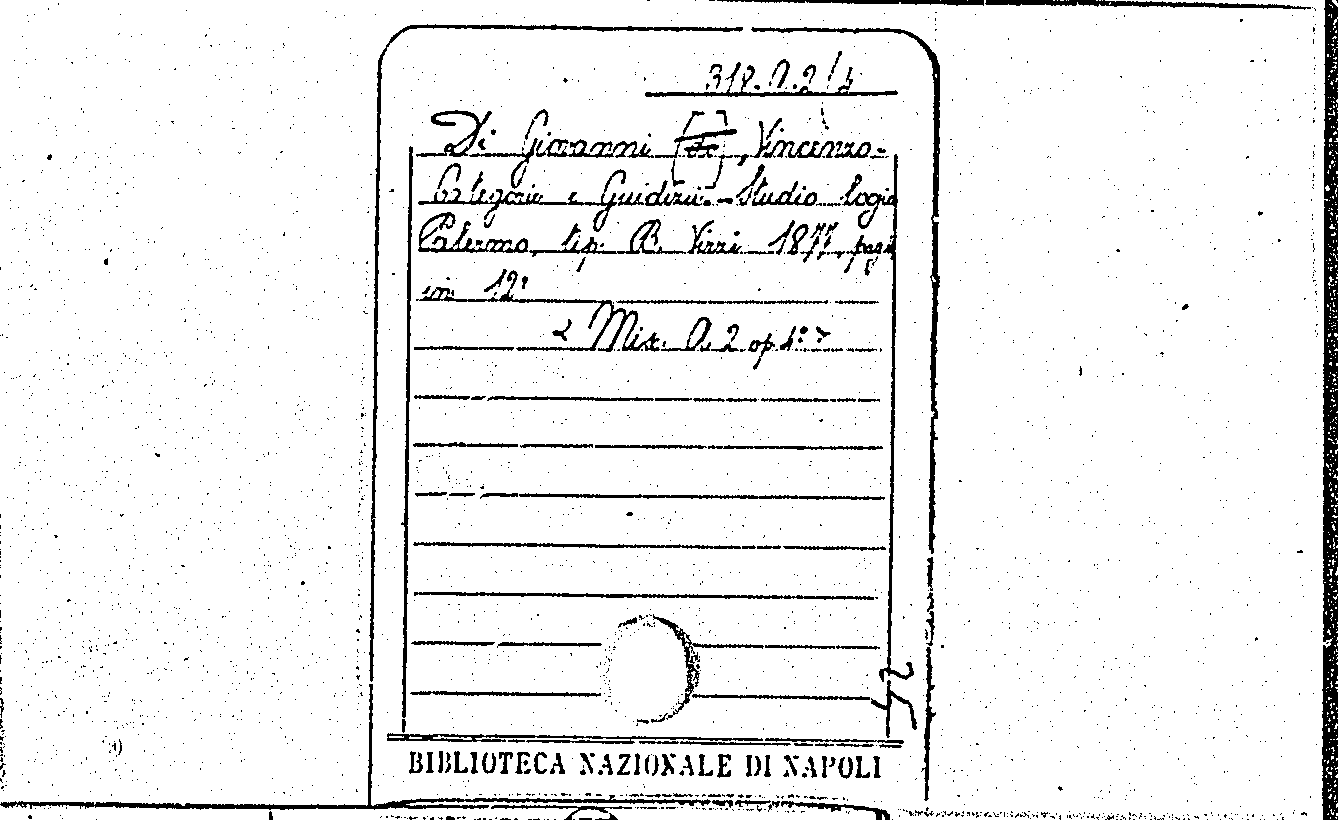 318. A. 2/4
Di Giovanni [Di], Vincenzo -
Categorie e Guidizii. - Studio logic
Palermo, tip. B. Virzi 1877, pag
in 12°
< Mis. A. 2 op 4° >
52
BIBLIOTECA NAZIONALE DI NAPOLI